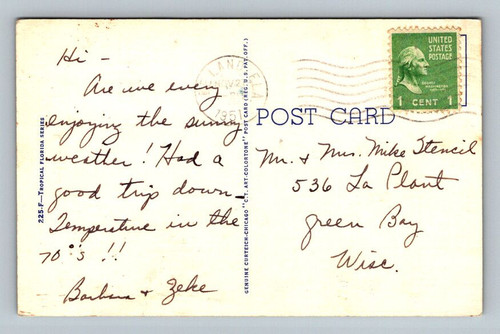 Hi -
Are we every
enjoying the sunny
weather! Had a
good trip down -
Temperature in the
70°s !!
Barbara + Zeke
225-F—TROPICAL FLORIDA SERIES
GENUINE CURTEICH-CHICAGO "C.T. ART-COLORTONE" POST CARD (REG. U.S. PAT. OFF.)
1951
UNITED
STATES
POSTAGE
1 CENT 1
POST CARD
Mr. & Mrs. Mike Stencil
536 La Plant
Green Bay
Wisc.